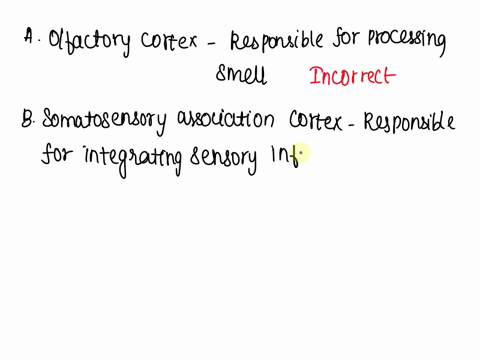 A. Olfactory cortex - Responsible for processing
smell Incorrect
B. Somatosensory association cortex - Responsible
for integrating sensory Inf